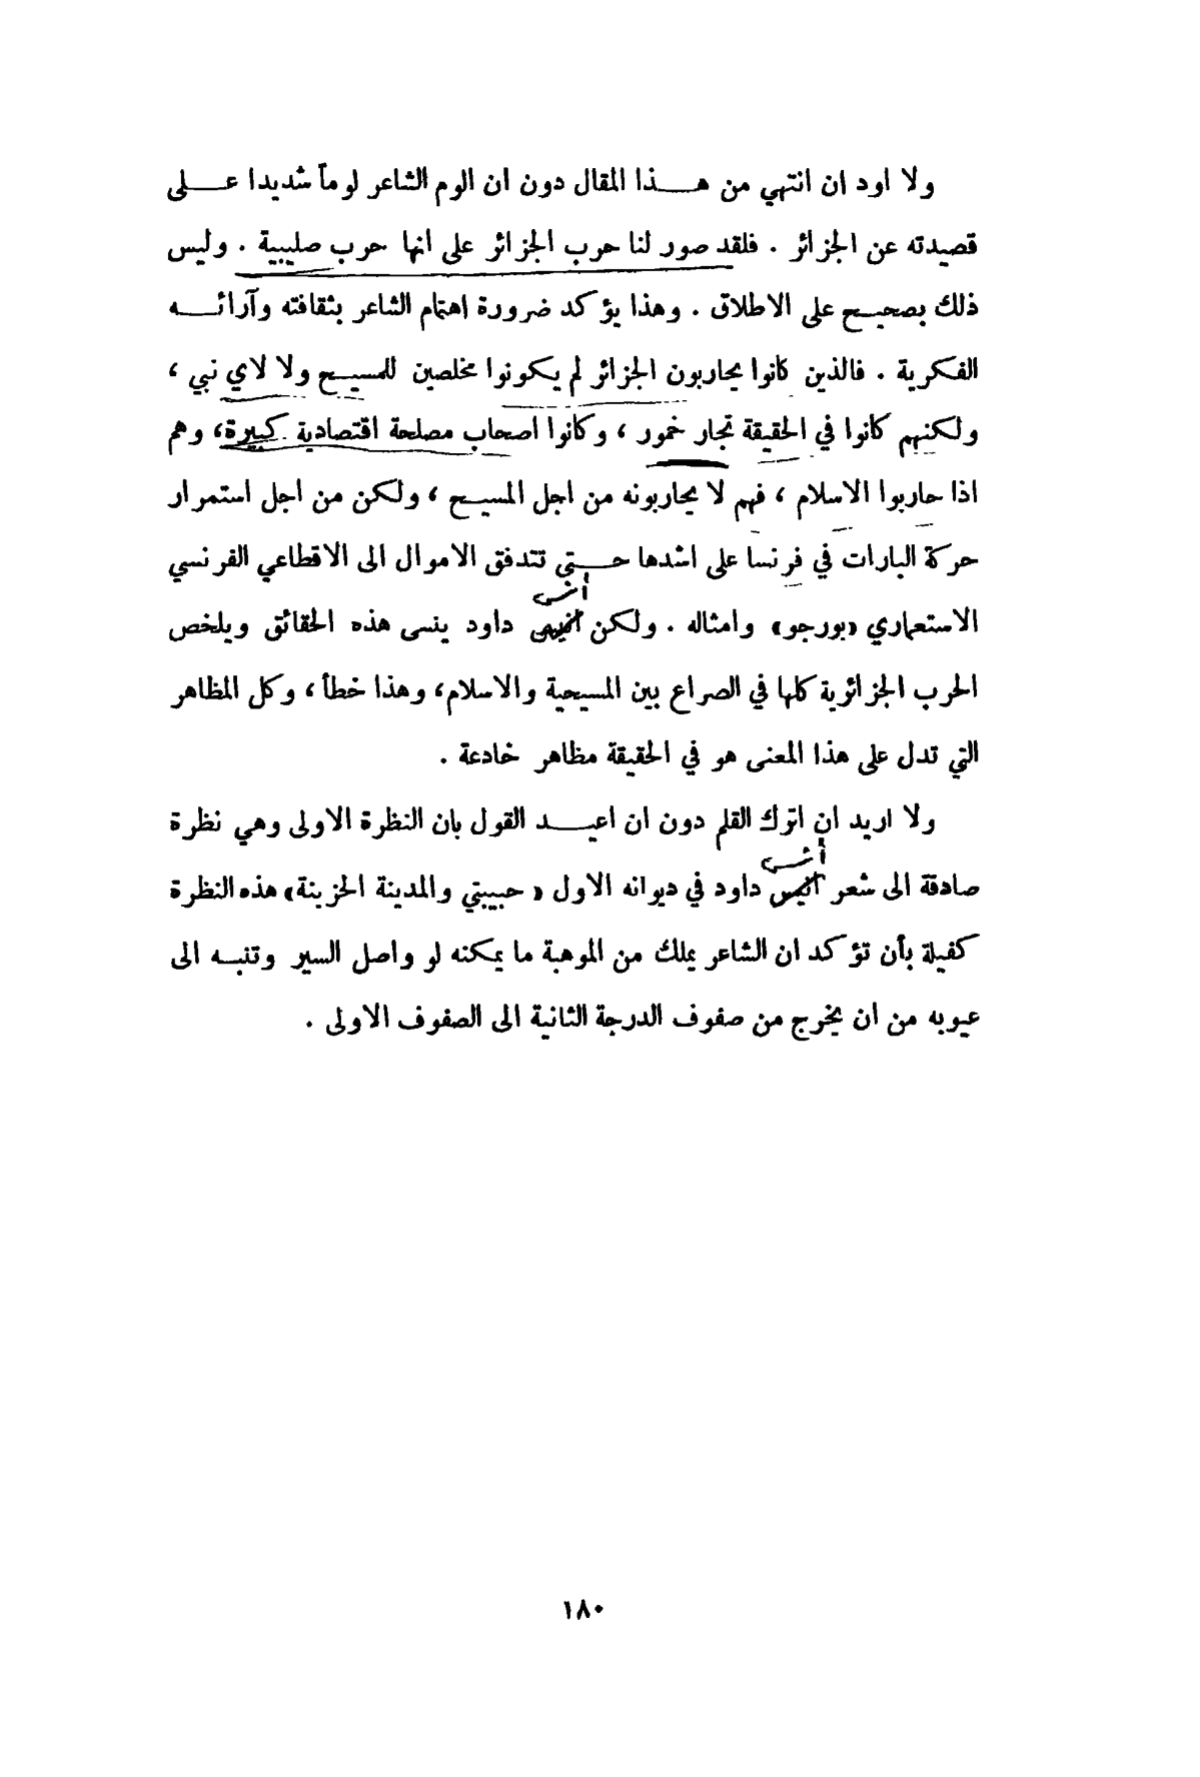 ولا اود ان انتهي من هـــذا المقال دون ان الوم الشاعر لوماً شديدا عـــلى
قصيدته عن الجزائر . فلقد صور لنا حرب الجزائر على انها حرب صليبية . وليس
ذلك بصحيـح على الاطلاق . وهذا يؤكد ضرورة اهتمام الشاعر بثقافته وآرائـــه
الفكرية . فالذين كانوا يحاربون الجزائر لم يكونوا مخلصين للمسيـح ولا لاي نبي ،
ولكنهم كانوا في الحقيقة تجار خمور ، وكانوا اصحاب مصلحة اقتصادية كبيرة، وهم
اذا حاربوا الاسلام ، فهم لا يحاربونه من اجل المسيـح ، ولكن من اجل استمرار
حركة البارات في فرنسا على اشدها حـــتى تتدفق الاموال الى الاقطاعي الفرنسي
أنس
الاستعماري «بورجو» وامثاله . ولكن انيس داود ينسى هذه الحقائق ويلخص
الحرب الجزائرية كلها في الصراع بين المسيحية والاسلام، وهذا خطأ ، وكل المظاهر
التي تدل على هذا المعنى هو في الحقيقة مظاهر خادعة .
ولا اريد ان اترك القلم دون ان اعيـــد القول بان النظرة الاولى وهي نظرة
أنس
صادقة الى شعر انيس داود في ديوانه الاول « حبيبتي والمدينة الحزينة» هذه النظرة
كفيلة بأن تؤكد ان الشاعر يملك من الموهبة ما يمكنه لو واصل السير وتنبـه الى
عيوبه من ان يخرج من صفوف الدرجة الثانية الى الصفوف الاولى .
١٨٠